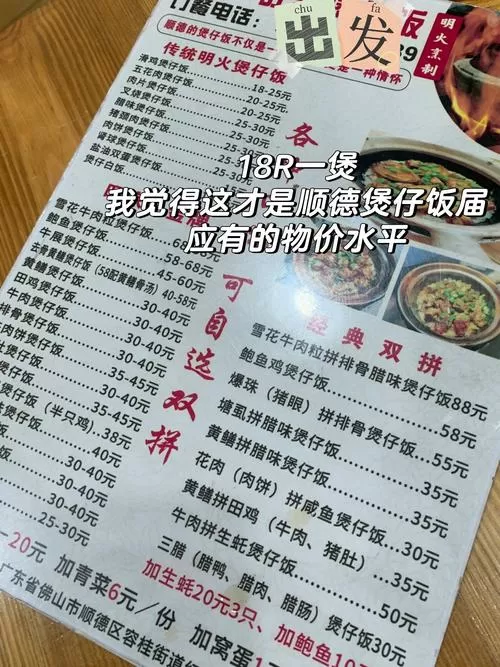 订餐电话：
chu fa
出发
饭
明火烹制
顺德的煲仔饭不仅是一
是一种情怀
传统明火煲仔饭
滑鸡煲仔饭 18-25元
五花肉煲仔饭 20-25元
肉片煲仔饭 20-25元
叉烧煲仔饭 25-30元
腊味煲仔饭 25-30元
猪颈肉煲仔饭 25-30元
肉饼煲仔饭 25-30元
肾球煲仔饭 25-30元
盐油双蛋煲仔饭
煲仔白饭
各
18R一煲
我觉得这才是顺德煲仔饭届
应有的物价水平
雪花牛肉粒煲仔饭
鲍鱼煲仔饭 58-68元
牛展煲仔饭 45-60元
去骨黄鳝煲仔饭（58配黄鳝骨汤）40-58元
黄鳝煲仔饭 30-40元
田鸡煲仔饭 30-40元
牛肉煲仔饭 30-40元
排骨煲仔饭 30-40元
肉煲仔饭 35-45元
煲仔饭 35-40元
煲仔饭（半只鸡）38元
煲仔饭 40元
仔饭 40元
30-40元
30-40元
25-30元
可自选双拼
经典双拼
雪花牛肉粒拼排骨腊味煲仔饭88元
鲍鱼鸡煲仔饭 58元
爆珠（猪眼）拼排骨煲仔饭 55元
塘虱拼腊味煲仔饭 35元
黄鳝拼腊味煲仔饭 35元
花肉（肉饼）拼咸鱼煲仔饭 30元
黄鳝拼田鸡（牛肉、猪肚） 35元
牛肉拼生蚝煲仔饭 50元
三腊（腊鸭、腊肉、腊肠）煲仔饭30元
20元 加青菜6元／份 加窝蛋
加生蚝20元3只、加鲍鱼10
广东省佛山市顺德区容桂街道